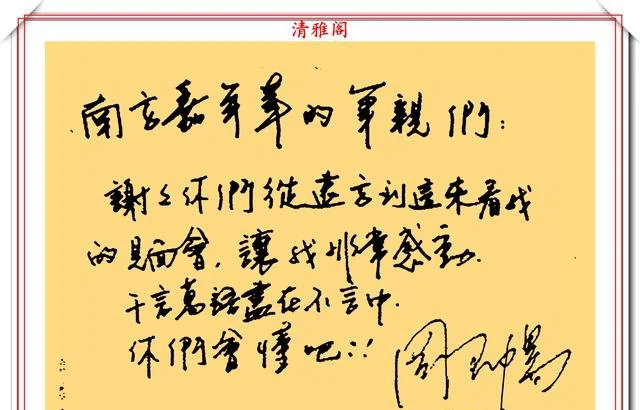 清雅阁
南京嘉年華的軍親們：
謝々你們從遠方到這來看我
的見面會，讓我非常感動.
千言萬語盡在不言中.
你們會懂吧!!
周